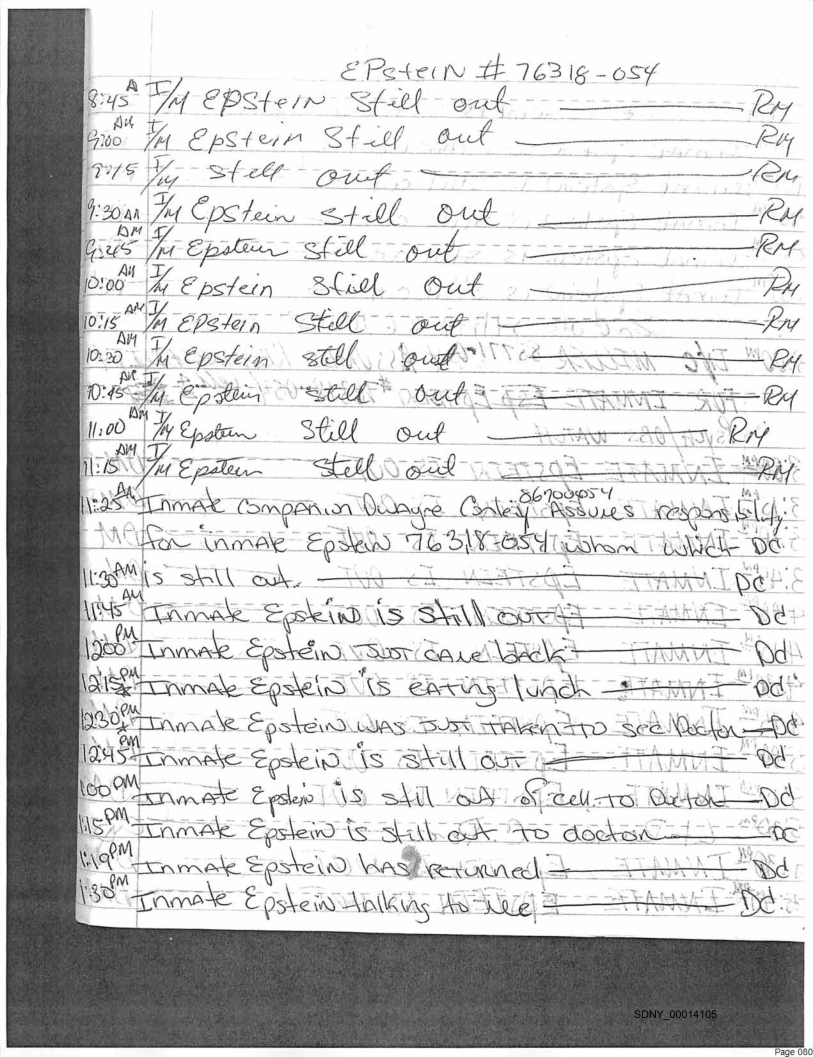 EPsteiN # 76318-054
8:45 A I/M EPStein Still out RM
9:00 AM I/M Epstein Still out RM
9:15 I/M still out RM
9:30 AM I/M Epstein still out RM
9:45 AM I/M Epstein still out RM
10:00 AM I/M Epstein still out RM
10:15 AM I/M EPStein Still out RM
10:30 AM I/M Epstein still out RM
10:45 AM I/M Epstein still out RM
11:00 AM I/M Epstein Still out RM
11:15 AM I/M Epstein still out RM
86700054
11:25 AM Inmate Companion Dwayne Assures responsibility
for inmate Epstein 76318-054 whom which DC
11:30 AM is still out. DC
11:45 AM Inmate Epstein is still out Dd
12:00 PM Inmate Epstein Just came back Dd
12:15 PM Inmate Epstein is eating lunch Dd
12:30 PM * Inmate Epstein was Just taken to see Doctor DC
12:45 PM Inmate Epstein is still out Dd
1:00 PM Inmate Epstein is still out of cell to Doctor Dd
1:15 PM Inmate Epstein is still out to doctor DC
1:19 PM Inmate Epstein has returned Dd
1:30 PM Inmate Epstein talking to me Dd
SDNY_00014105
Page 080